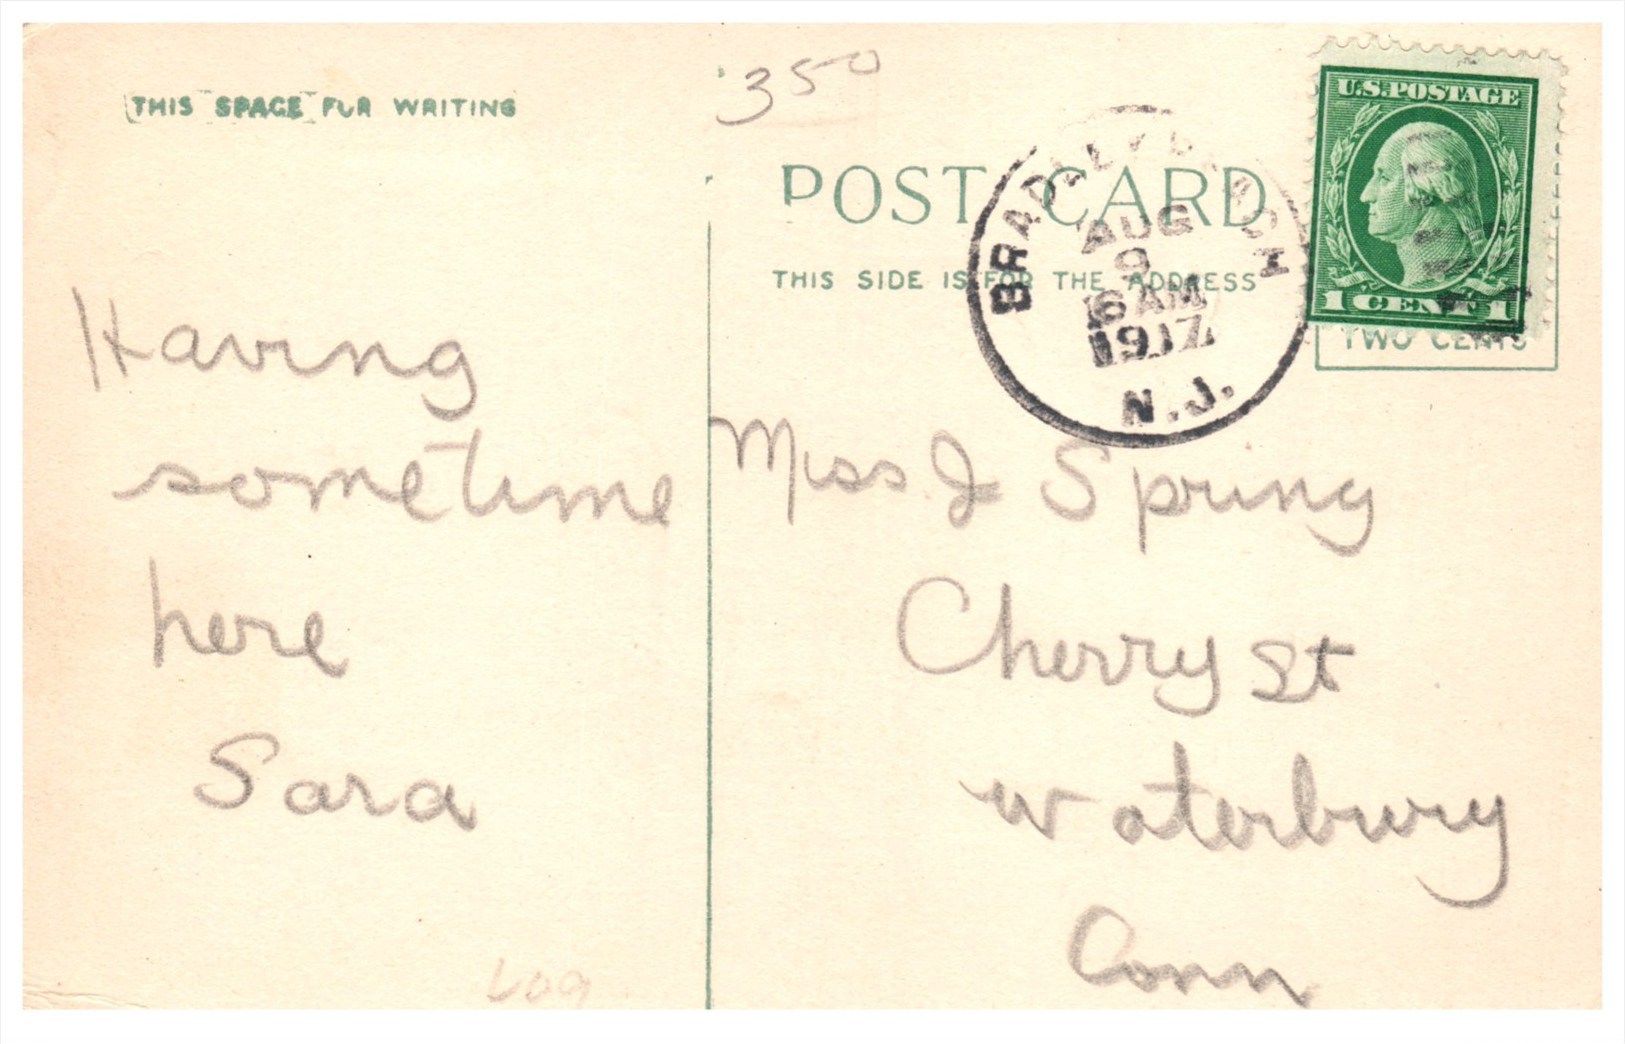 THIS SPACE FUR WRITING
350
POST CARD
THIS SIDE IS FOR THE ADDRESS
U.S. POSTAGE
1 CENT 1
TWO CENTS
BRADLEY BEACH
AUG
9
6 AM
1917
N.J.
Having
sometime
here
Sara
Miss J Spring
Cherry St
Waterbury
Conn